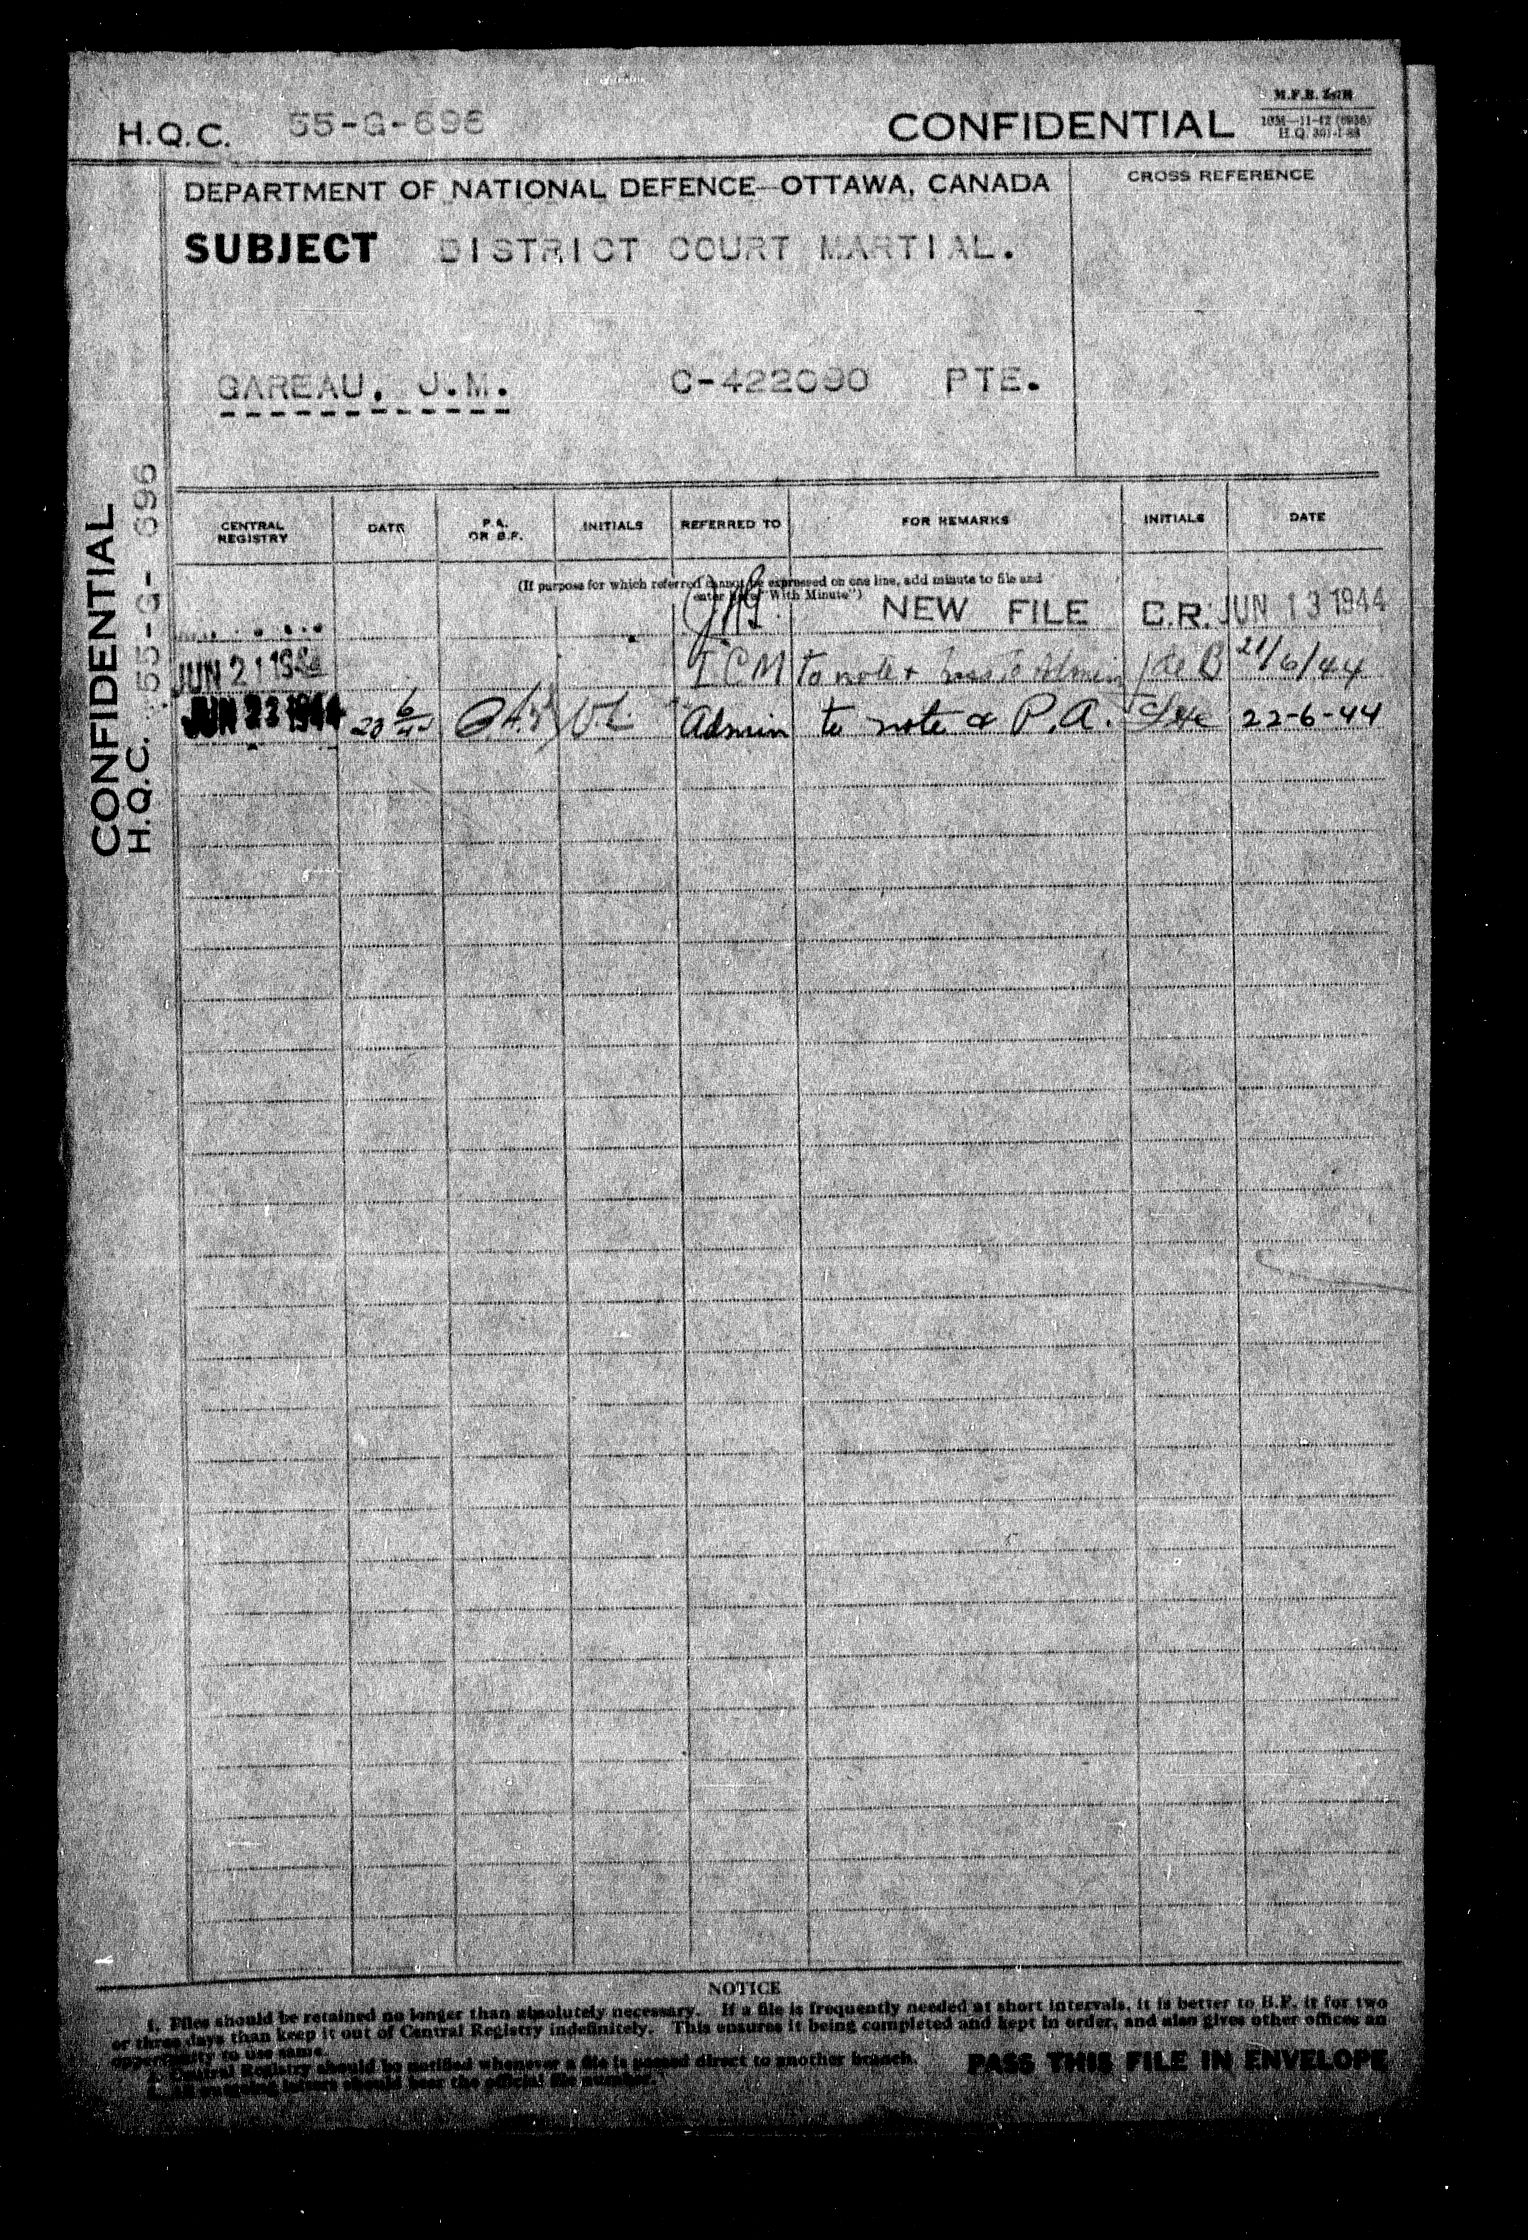 H.Q.C. 55-G-696
CONFIDENTIAL
DEPARTMENT OF NATIONAL DEFENCE—OTTAWA, CANADA
CROSS REFERENCE
SUBJECT DISTRICT COURT MARTIAL.
GAREAU, J.M. C-422090 PTE.
CONFIDENTIAL
H.Q.C. 55-G-696
CENTRAL REGISTRY DATE P.A. OR B.F. INITIALS REFERRED TO FOR REMARKS INITIALS DATE
(If purpose for which referred cannot be expressed on one line, add minute to file and
enter here "With Minute")
JAG. NEW FILE C.R. JUN 13 1944
JUN 21 1944 to note & pass to Admin 21/6/44
JUN 23 1944 Admin to note & P.A. 22-6-44
NOTICE
1. Files should be retained no longer than absolutely necessary. If a file is frequently needed at short intervals, it is better to B.F. it for two
or three days than keep it out of Central Registry indefinitely. This ensures it being completed and kept in order, and also gives other offices an
opportunity to use same.
2. Central Registry should be notified whenever a file is passed direct to another branch.
3. All outgoing letters should bear the official file number.
PASS THIS FILE IN ENVELOPE